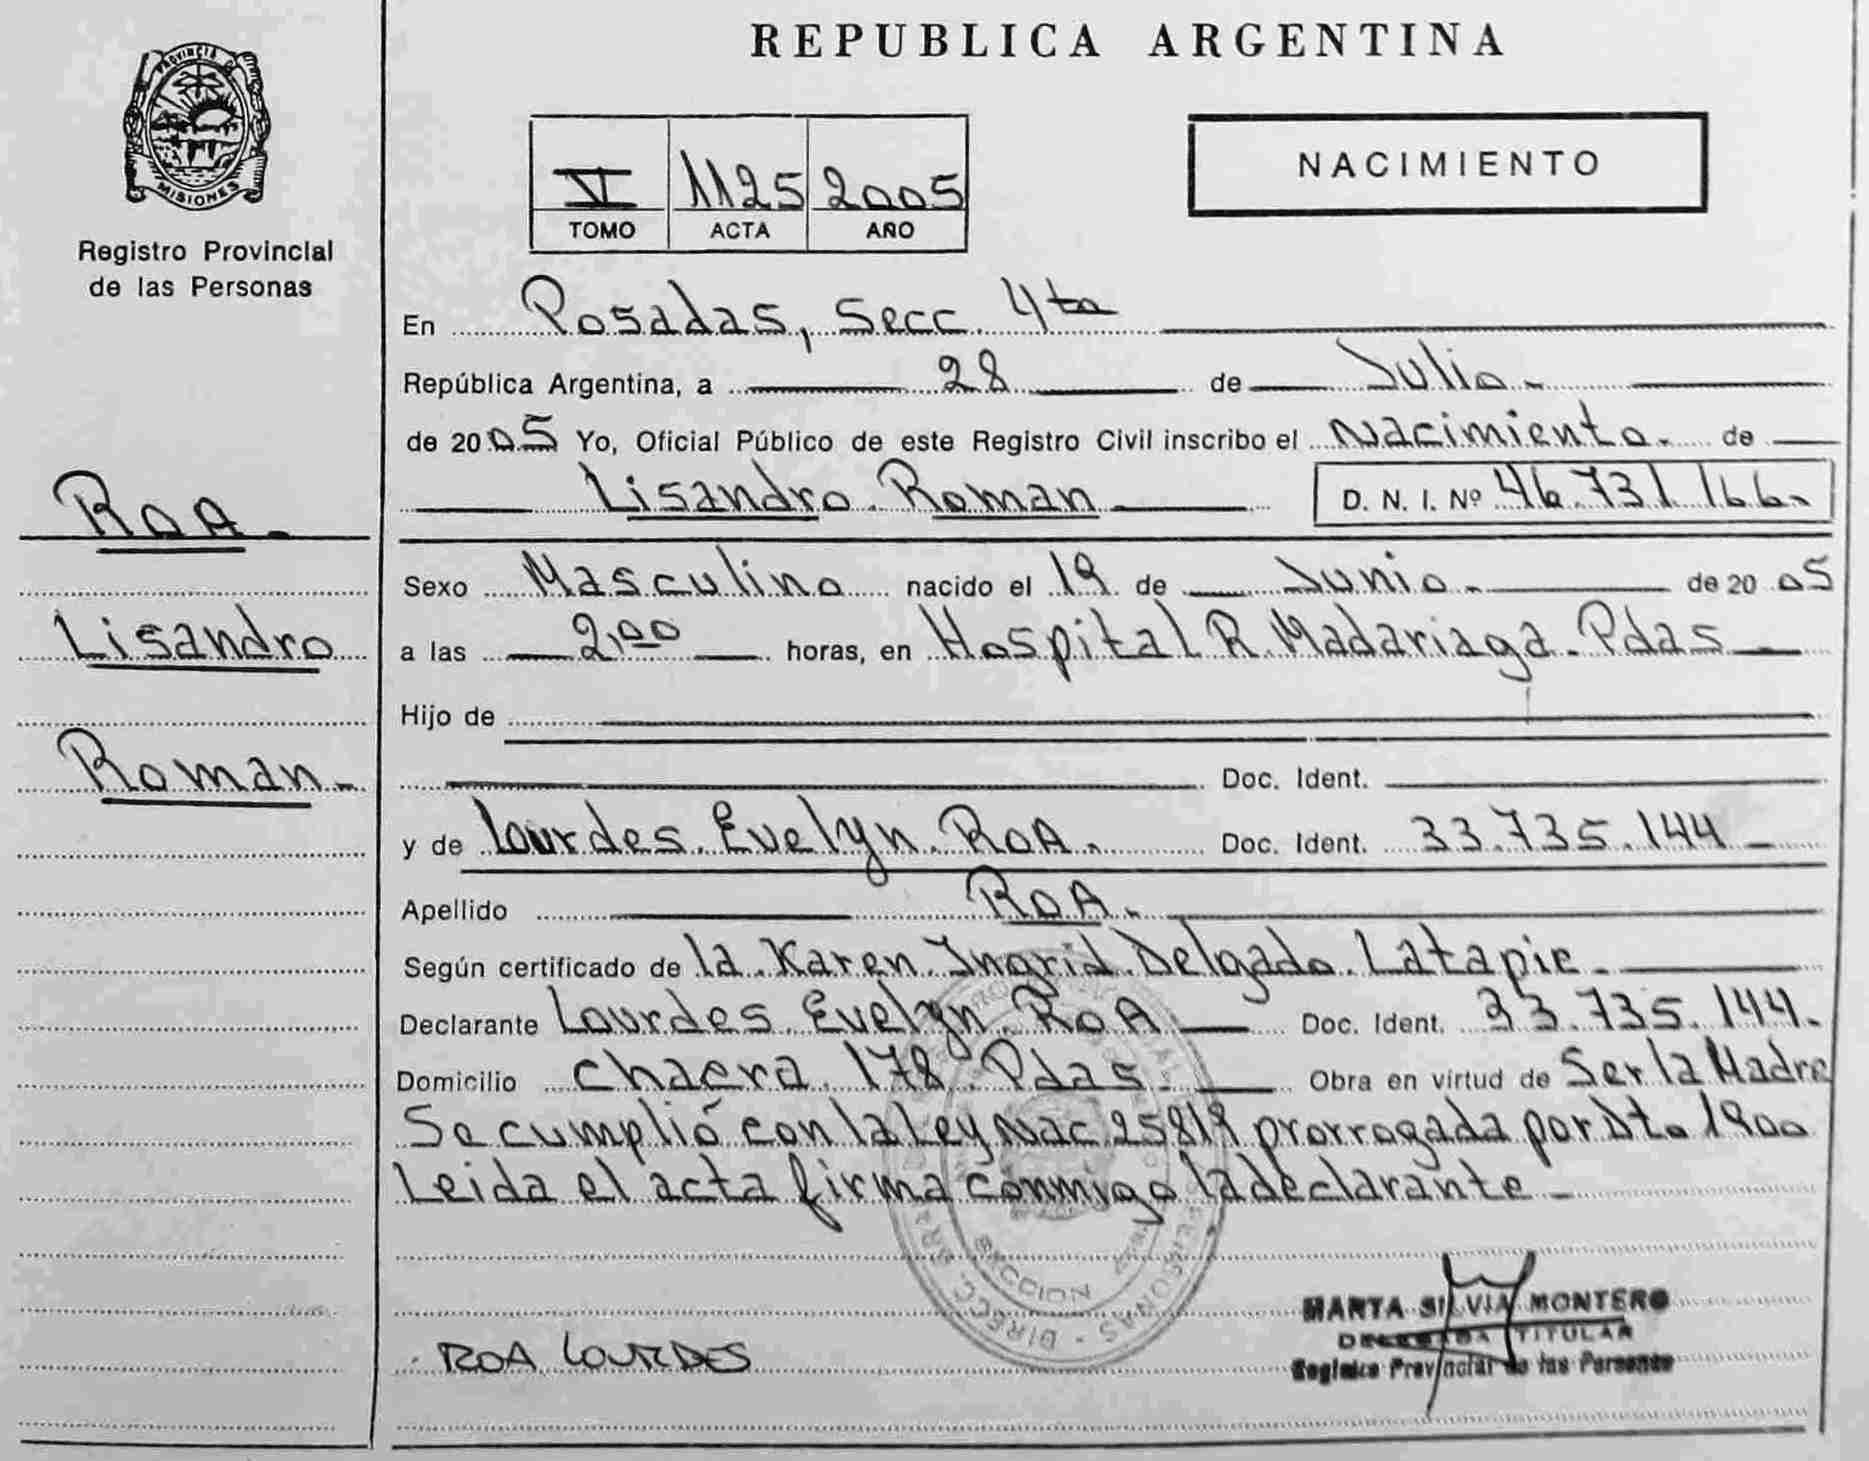 PROVINCIA DE
MISIONES
Registro Provincial
de las Personas
RoA.
Lisandro
Roman.
REPUBLICA ARGENTINA
VI 1125 2005
TOMO ACTA AÑO
NACIMIENTO
En Posadas, Secc. 4ta
República Argentina, a 28 de Julio.
de 2005 Yo, Oficial Público de este Registro Civil inscribo el Nacimiento. de
Lisandro Roman D. N. I. Nº 46.731.166.
Sexo Masculino nacido el 19 de Junio. de 2005
a las 2,00 horas, en Hospital R. Madariaga. Pdas
Hijo de
Doc. Ident.
y de Lourdes Evelyn RoA. Doc. Ident. 33.735.144
Apellido RoA.
Según certificado de la Karen Ingrid Delgado Latapie.
Declarante Lourdes Evelyn RoA Doc. Ident. 33.735.144.
Domicilio Chacra 178 Pdas. Obra en virtud de Ser la Madre
Se cumplió con la Ley Nac 25819 prorrogada por Dto 1900
Leida el acta firma conmigo la declarante
SECCION
DIRECC
ROA LOURDES
MARTA SILVIA MONTERO
DELEGADA TITULAR
Registro Provincial de las Personas